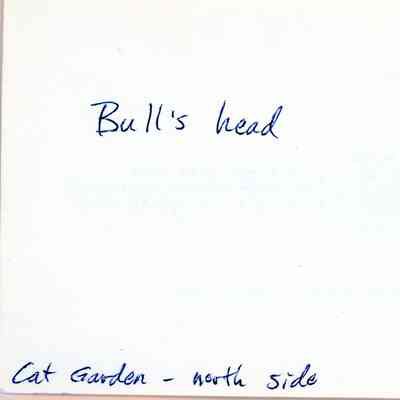 Bull's head
Cat Garden - north side